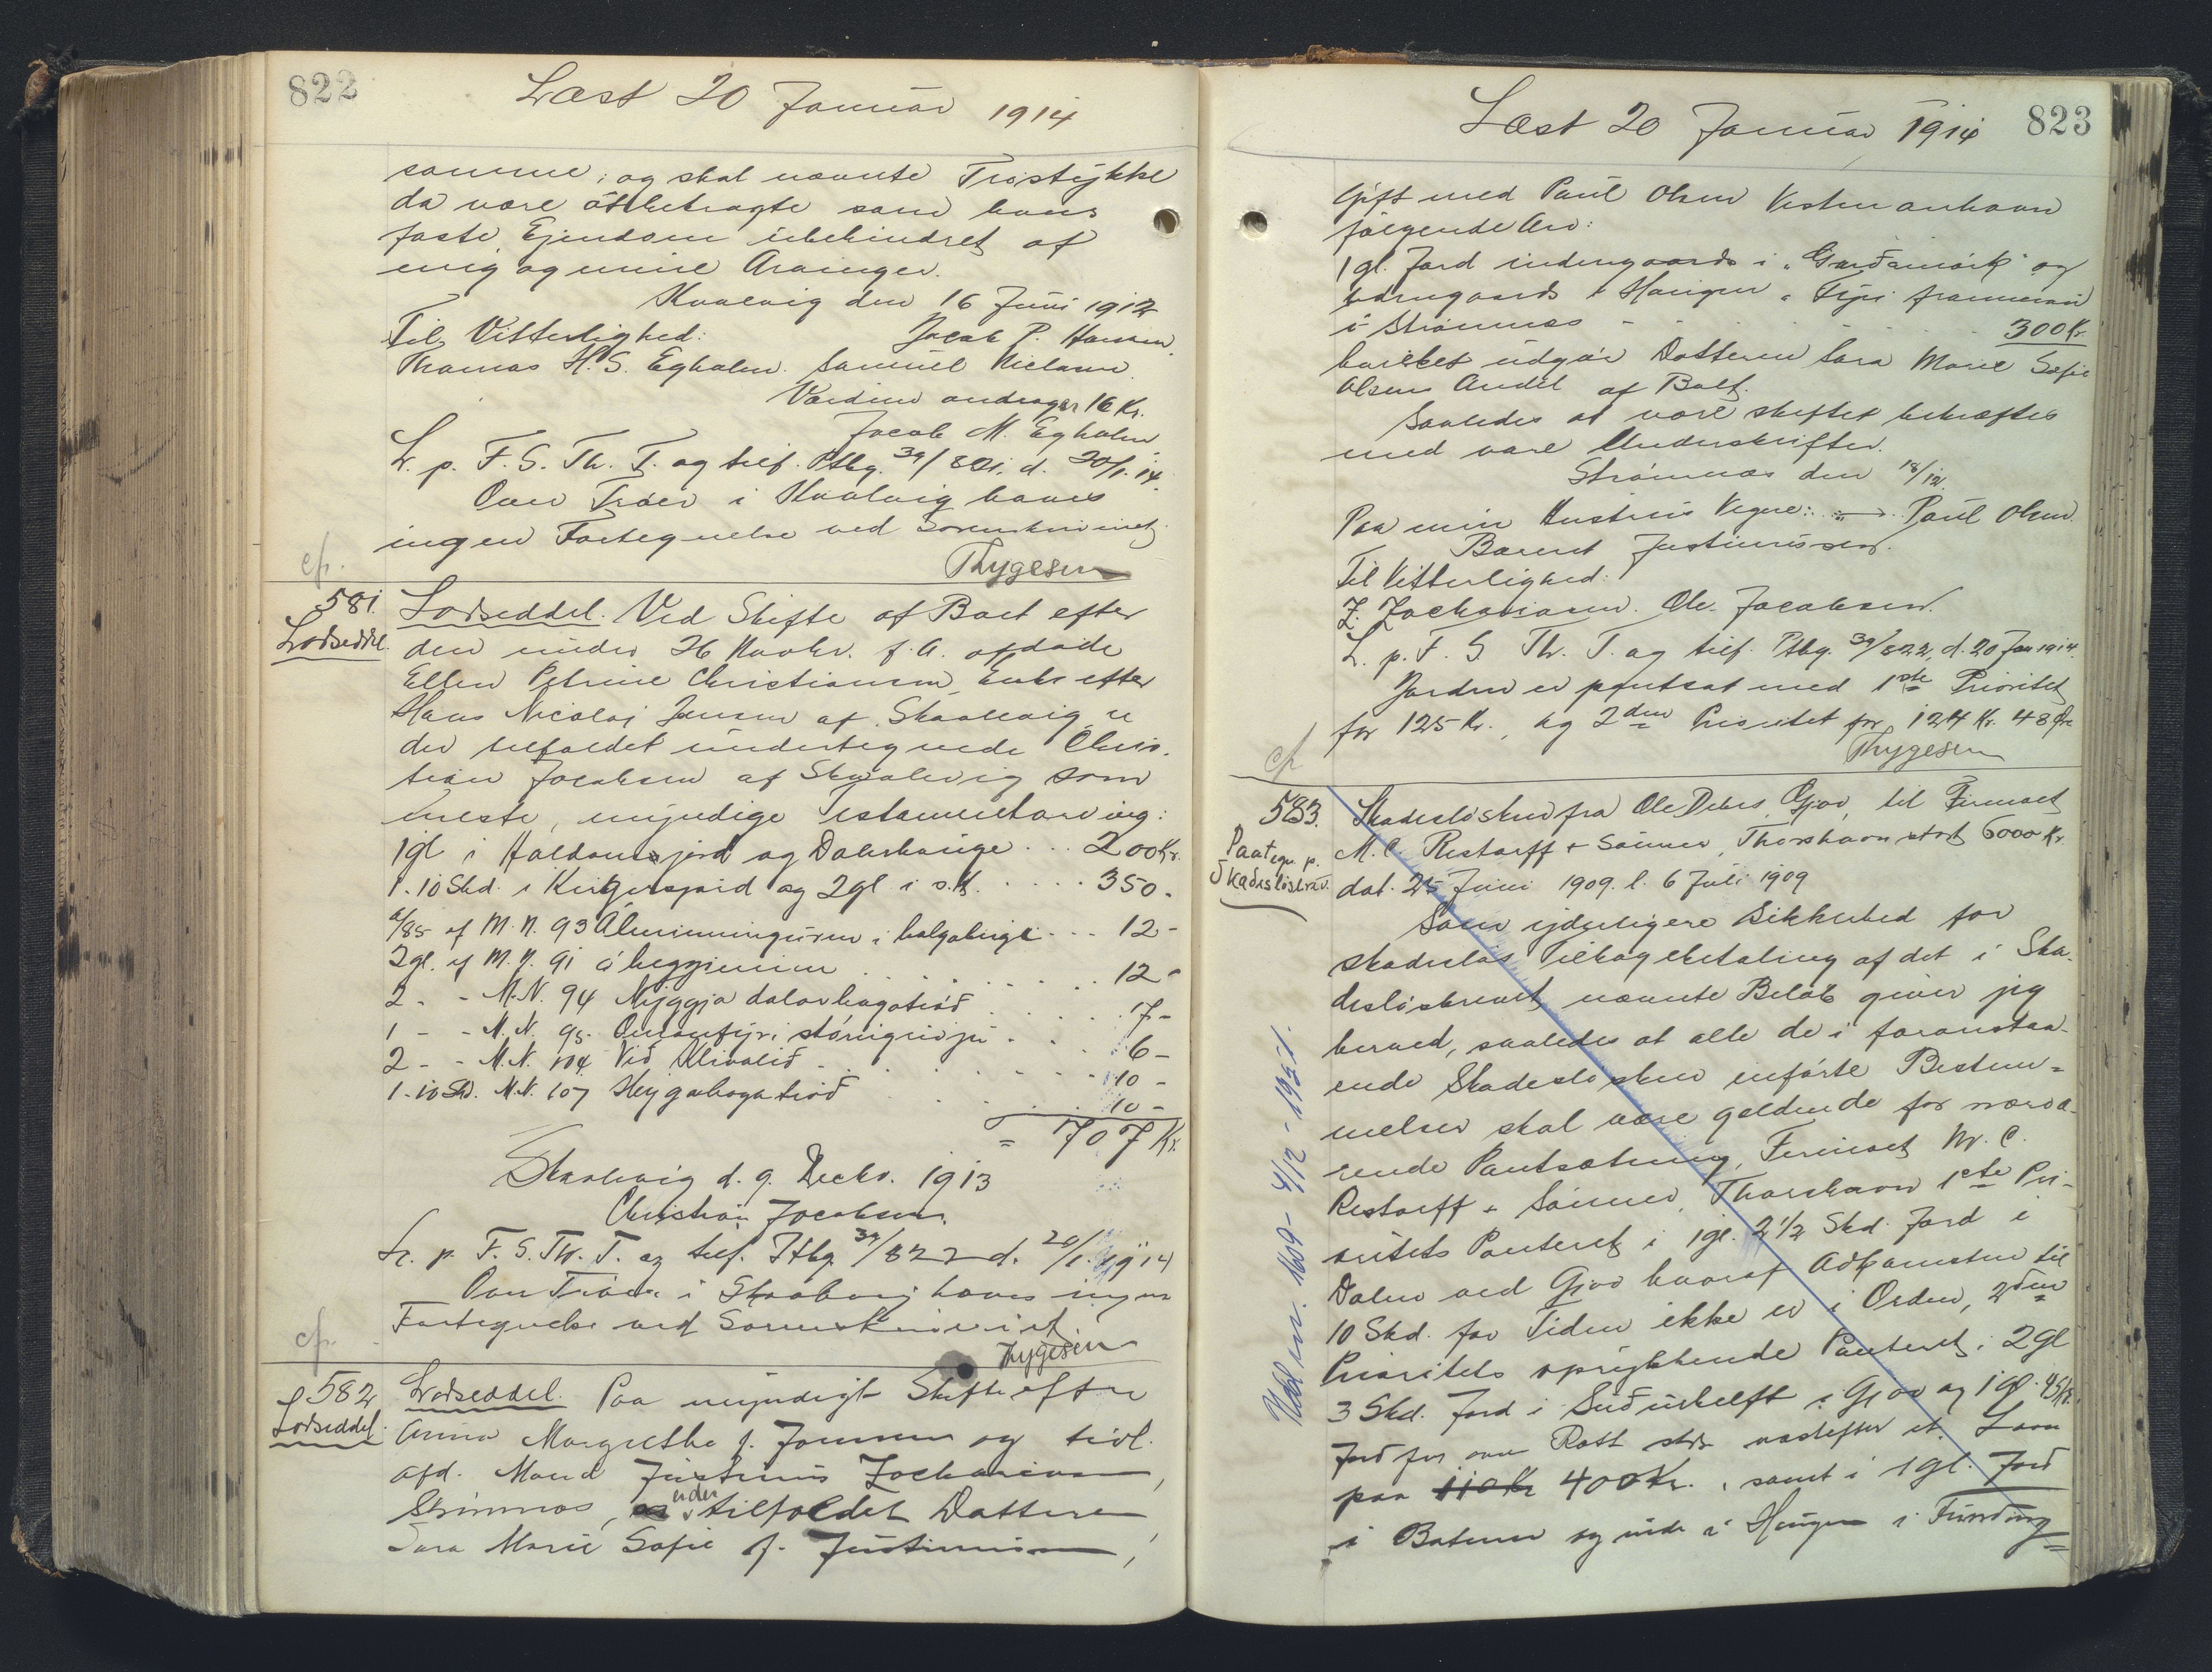 822
Læst 20 Januar 1914
samme; og skal nævnte Trøstykke
da være at betragte som hans
faste Ejendom ubehindret af
mig og mine Arvinger.
Kvalvig den 16 Juni 1912
Til Vitterlighed: Jacob P. Hansen
Thomas H. S. Egholm. Samuel Nielsen
Værdien andrager 16 Kr.
Jacob M. Egholm
L. p. F. S. Th. T. og tilf. Ptbg. 39/821, d. 20/1. 14.
Over Trøer i Kvalvig haves
ingen Fortegnelse ved Sorenskriveriet.
Thygesen
cfr.
581.
Lodseddel.
Lodseddel. Ved Skifte af Boet efter
den under 26 Novbr. f. A. afdøde
Ellen Petrine Christiansen, Enke efter
Hans Nicolaj Jensen af Skaalevig er
der tilfaldet undertegnede Chris-
tian Jacobsen af Skaalevig som
eneste, myndige Testamentarving:
1 gl i Haldansjørd og Dalshauge ... 200 Kr.
1 - 10 Skd. i Kirgensjord og 2 gl i s. K. .... 350 -
/85 af M. N. 93 i halgalengi ... 12 -
2 gl. af M. N. 91 á heygginum ..... 12 -
2 - - M. N. 94 Niggja dalavhagatrøð ..... 17 -
1 - - M. N. 95. Omanfyri stórugrivju ... 6 -
2 - - M. N. 104 Við Klivalið ..... 10 -
1 - 10 Sk. M. N. 107 Heygahagatrøð ..... 10 -
= 707 Kr.
Skaalevig d. 9. Decbr. 1913
Christian Jacobsen.
L. p. F. S. Th. T. og tilf. Ptbg. 39/822 d. 20/1. 1914
Over Trøer i Skaalevig haves ingen
Fortegnelse ved Sorenskriveriet.
Thygesen
cfr.
582
Lodseddel.
Lodseddel. Paa myndigt Skifte efter
Anna Margrethe f. Joensen og tidl.
afd. Mand Justinus Zachariasen,
Strømnæs, er uden tilfaldet Datteren
Sara Marie Sofie f. Justinussen,
823
Læst 20 Januar 1914
gift med Paul Olsen Vestmanhavn
følgende Arv:
1 gl. Jord indengaards i "Garðamørk" og
udengaards i Haugen "Fyri frammaná"
i Strømnæs - 300 Kr.
hvilket udgør Datteren Sara Marie Sofie
Olsens Andel af Boet.
Saaledes at være skiftet bekræftes
med vore Underskrifter.
Strømnæs den 18/12.
Paa min Hustrus Vegne: Paul Olsen
Barent Justinussen.
Til Vitterlighed:
Z. Zachariasen. Ole Jacobsen.
L. p. F. S. Th. T. og tilf. Ptbg. 39/822, d. 20 Jan 1914.
Jorden er pantsat med 1ste Prioritet
for 125 Kr., og 2den Prioritet for 124 Kr. 48 Øre
Thygesen
cfr
583.
Paategn. p.
Skadesløsbrev.
Skadesløsbrev fra Ole Debes, Gjov, til Firmaet
M. C. Restorff + Sønner, Thorshavn stort 6000 Kr.
dat. 25 Juni 1909. l. 6 Juli 1909
Som yderligere Sikkerhed for
skadesløs Tilbagebetaling af det i Ska-
desløsbrevet nævnte Beløb giver jeg
herved, saaledes at alle de i foranstaa-
ende Skadesløsbrev anførte Bestem-
melser skal være gældende for nærvæ-
rende Pantsætning, Firmaet M. C.
Restorff + Sønner, Thorshavn 1ste Pri-
oritets Panteret i 1 gl. 2 1/2 Skd. Jord i
Dalen ved Gjov hvoraf Adkomsten til
10 Skd. for Tiden ikke er i Orden, 2den
Prioritets oprykkende Panteret i 2 gl
3 Skd. Jord i Suðurhelft i Gjov og 1 gl.
Jord paa Rætt næstefter et Laan
paa 110 Kr 400 Kr., samt i 1 gl. Jord
i Botnum og inde i Haugen i Funding=
Udsl. nr. 1609 - 4/12 - 1951.